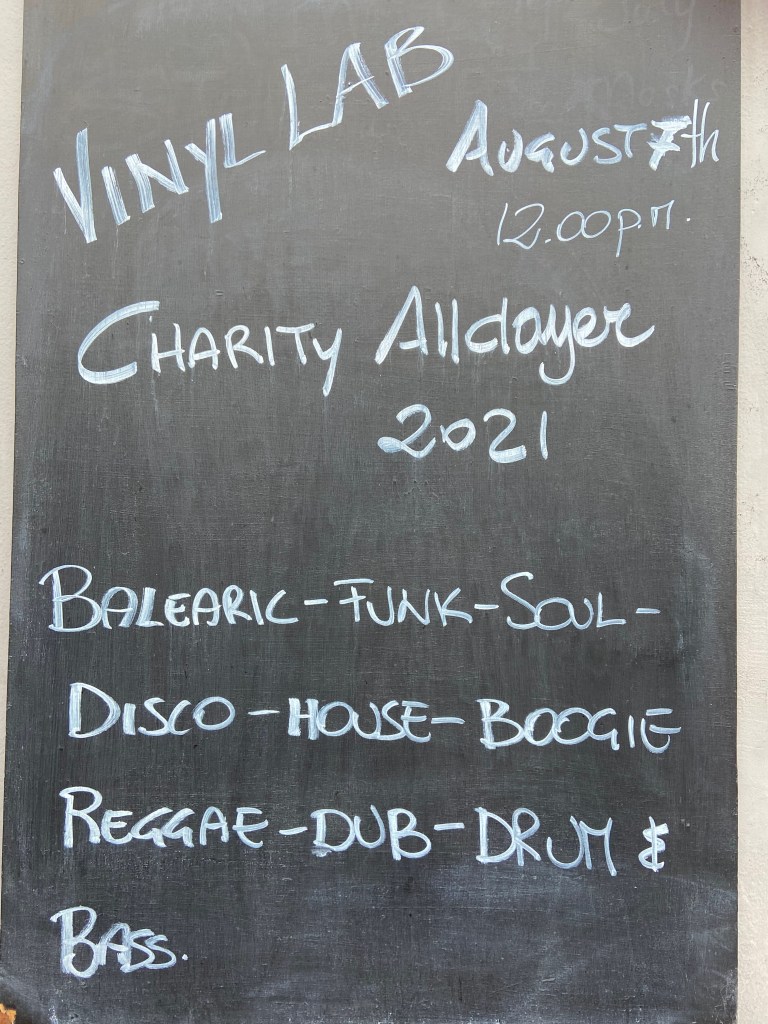 VINYL LAB
AUGUST 7th
12.00p.m.
CHARITY Alldayer
2021
BALEARIC - FUNK - SOUL -
DISCO - HOUSE - BOOGIE
REGGAE - DUB - DRUM &
BASS.